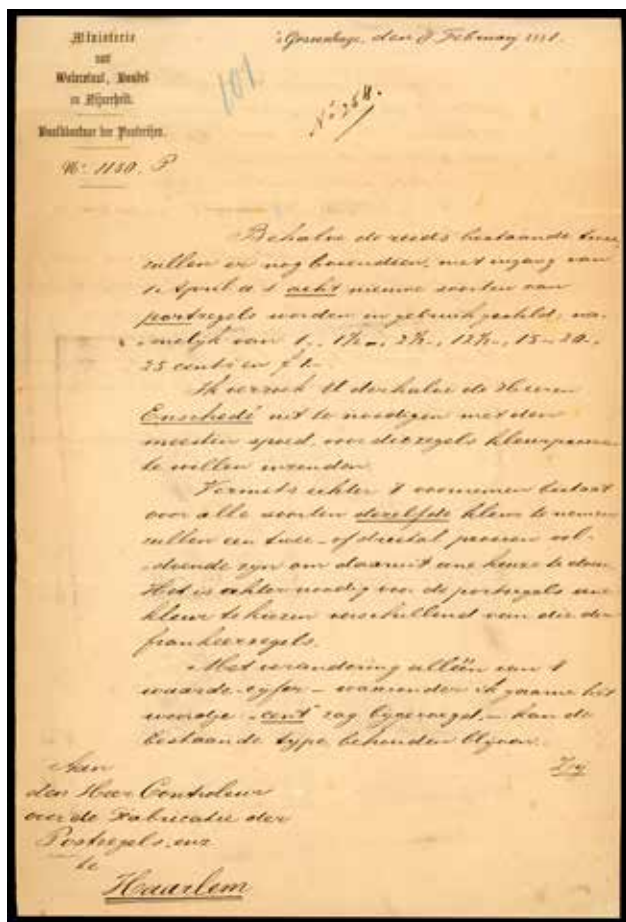 Ministerie
van
Waterstaat, Handel
en Nijverheid.
Hoofdbestuur der Posterijen.
No. 1150. P
's Gravenhage, den 8 February
101
No 258.
Behalve de reeds bestaande twee
zullen er nog bovendien, met ingang van
1e April a. s. acht nieuwe soorten van
portzegels worden in gebruik gesteld, na-
melijk van 1-, 1½-, 2½-, 12½-, 15-, 20-,
25 cents en f 1.-
Ik verzoek U derhalve de Heeren
Enschedé uit te noodigen met den
meesten spoed, voor die zegels kleurproeven
te willen inzenden.
Vermits echter 't voornemen bestaat
voor alle soorten dezelfde kleur te nemen
zullen een twee- of drietal proeven vol-
doende zyn om daaruit eene keuze te doen.
Het is echter noodig voor de portzegels eene
kleur te kiezen verschillend van die der
frankeerzegels.
Met verandering alléén van 't
waarde-cyfer - waaronder ik gaarne het
woordje "cent" zag bygevoegd, - kan de
bestaande type behouden blyven.
Zy
Aan
den Heer Controleur
over de Fabricatie der
Postzegels, enz
te
Haarlem